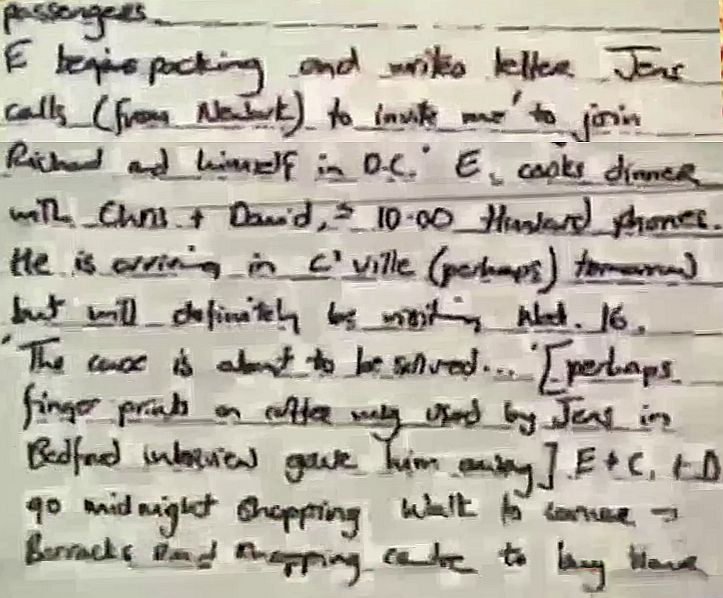 passengers
E begins packing and writes letter Jens
calls (from Newark) to invite me' to join
Richard and himself in D.C.' E. cooks dinner
with Chris + David, 10.00 Howard phones.
He is arriving in C'ville (perhaps) tomorrow
but will definitely be visiting Wed. 16.
'The case is about to be solved...' [perhaps
finger prints on coffee mug used by Jens in
Bedford interview gave him away] E + C. + D
go midnight shopping Walk to corner
Barracks Road shopping centre to buy